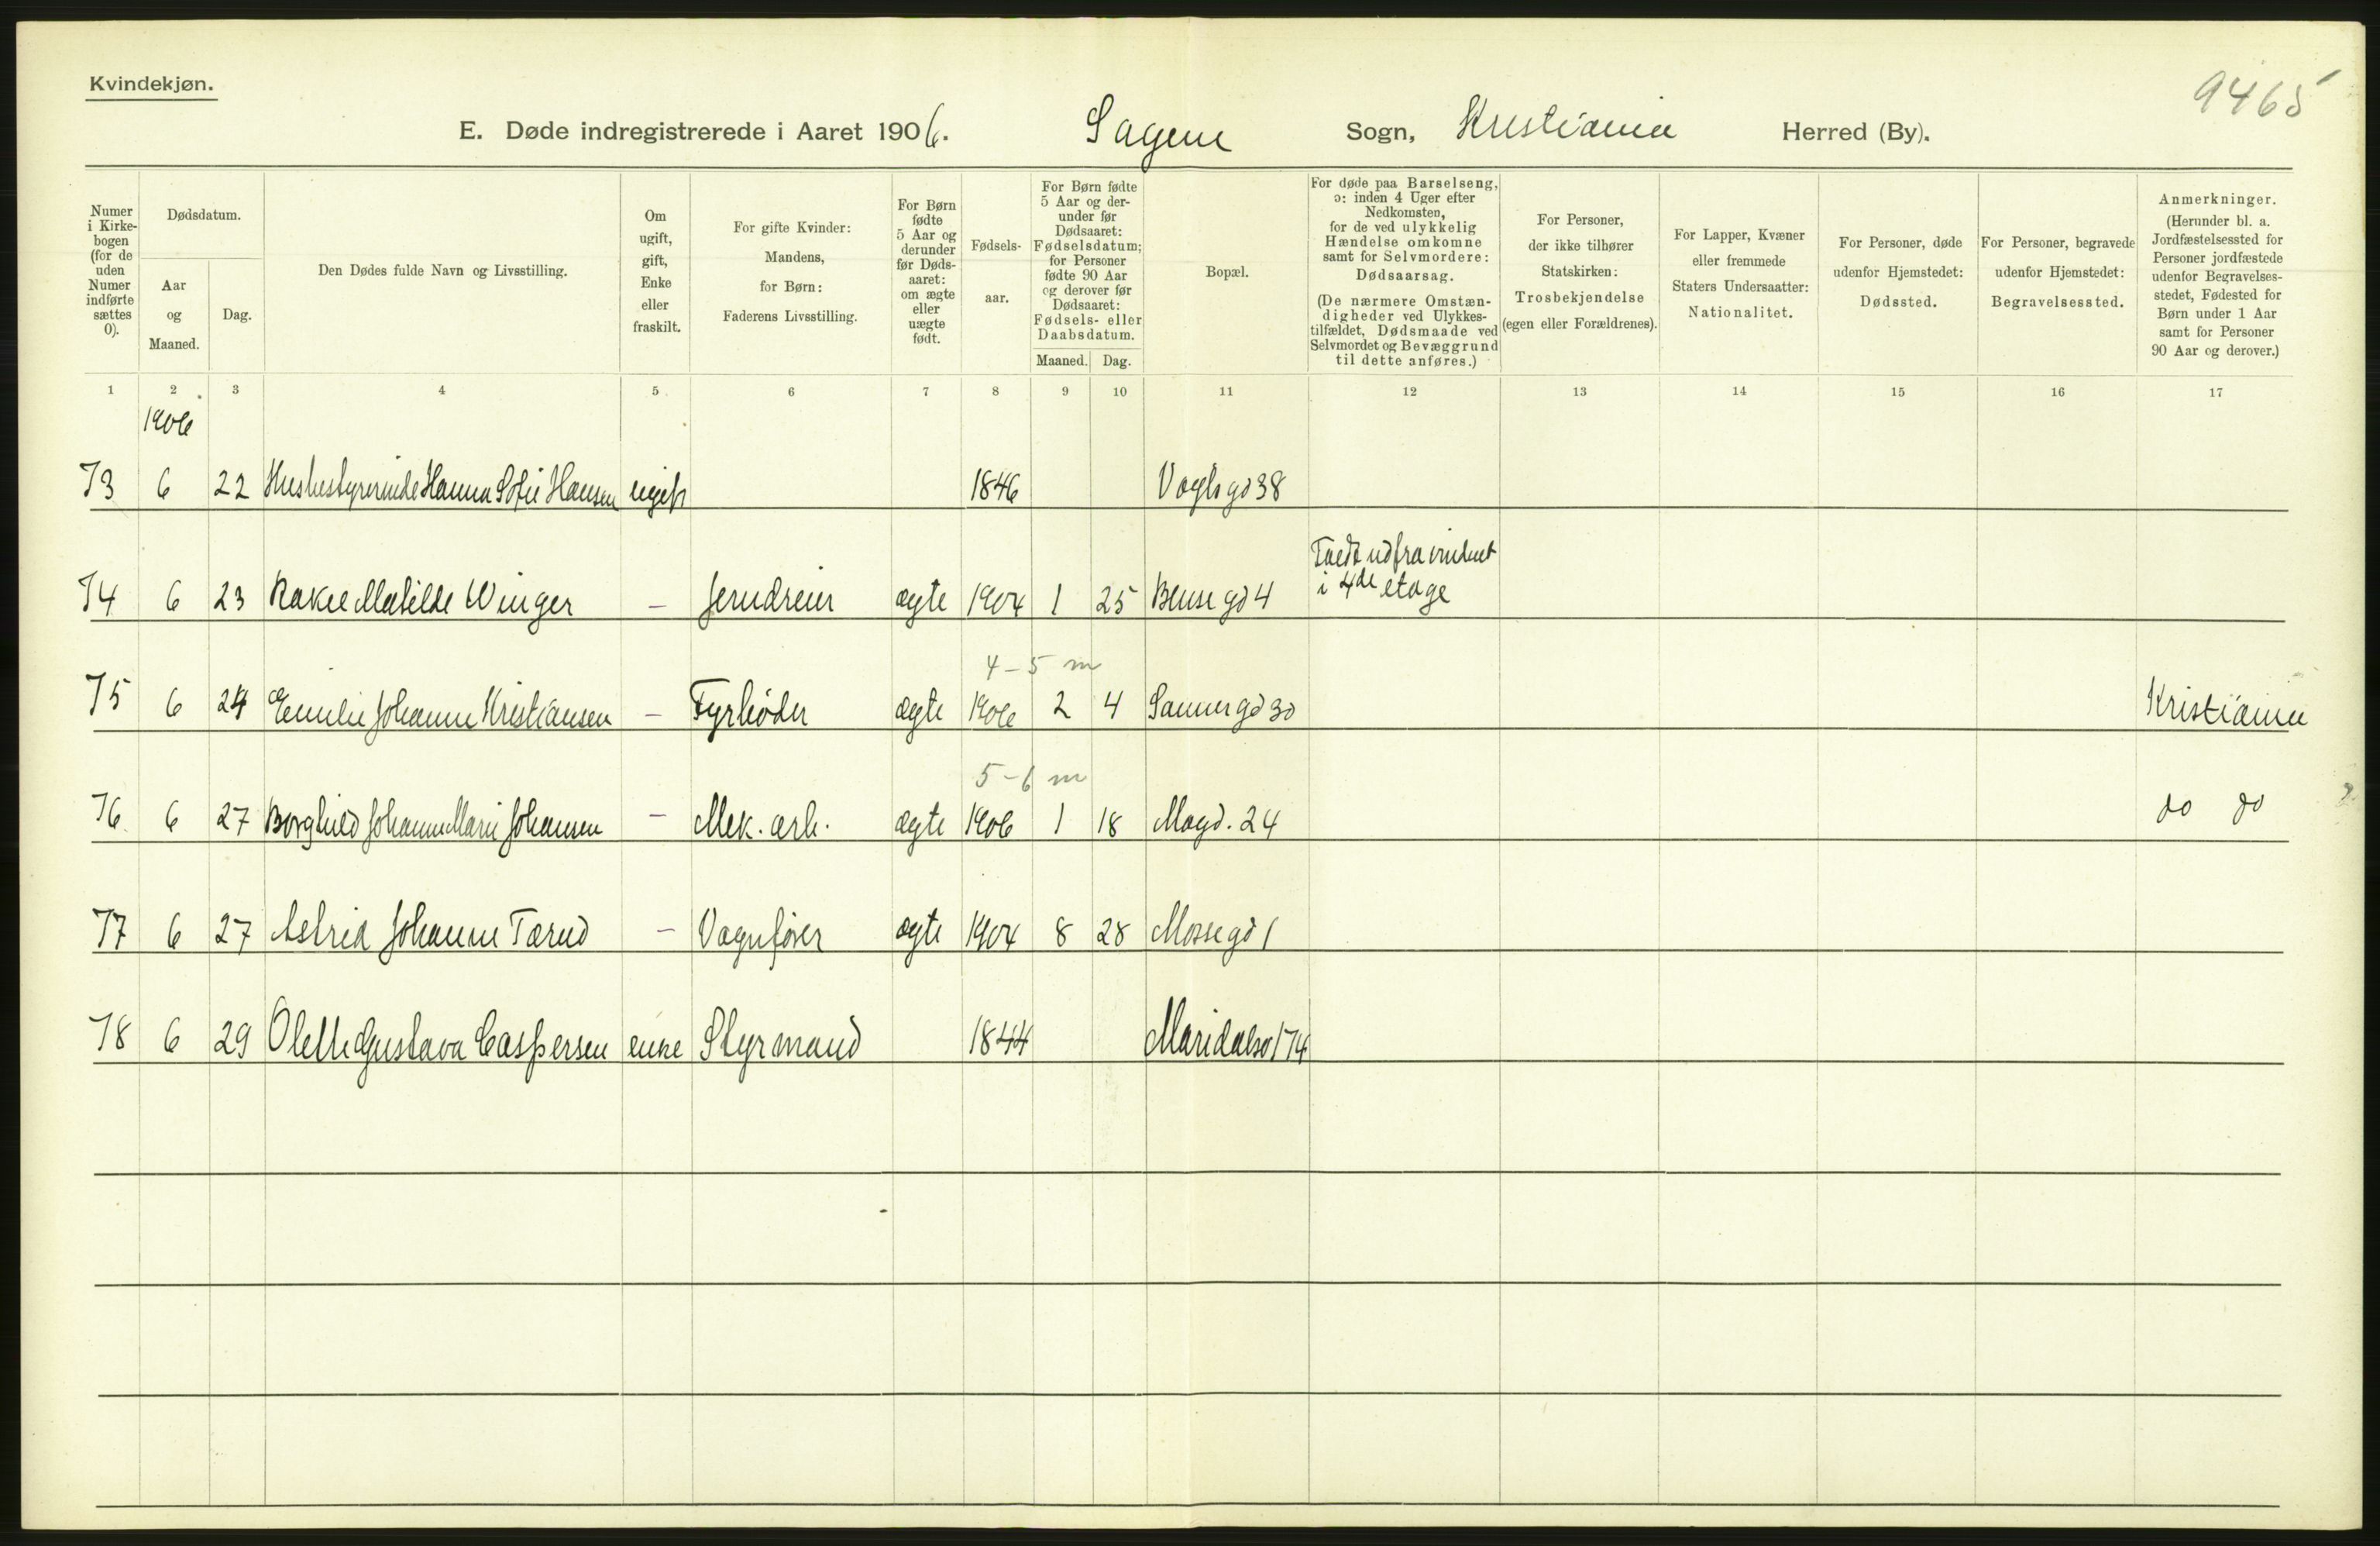 Kvindekjøn.
9465
E. Døde indregistrerede i Aaret 1906. Sagene Sogn, Kristiania Herred (By).
Numer i Kirkebogen (for de uden Numer indførte sættes 0).
Dødsdatum.
Aar og Maaned.
Dag.
Den Dødes fulde Navn og Livsstilling.
Om ugift, gift, Enke eller fraskilt.
For gifte Kvinder: Mandens, for Børn: Faderens Livsstilling.
For Børn fødte 5 Aar og derunder før Dødsaaret: om ægte eller uægte født.
Fødselsaar.
For Børn fødte 5 Aar og derunder før Dødsaaret: Fødselsdatum; for Personer fødte 90 Aar og derover før Dødsaaret: Fødsels- eller Daabsdatum.
Maaned. Dag.
Bopæl.
For døde paa Barselseng, ɔ: inden 4 Uger efter Nedkomsten, for de ved ulykkelig Hændelse omkomne samt for Selvmordere: Dødsaarsag.
(De nærmere Omstændigheder ved Ulykkestilfældet, Dødsmaade ved Selvmordet og Bevæggrund til dette anføres.)
For Personer, der ikke tilhører Statskirken: Trosbekjendelse (egen eller Forældrenes).
For Lapper, Kvæner eller fremmede Staters Undersaatter: Nationalitet.
For Personer, døde udenfor Hjemstedet: Dødssted.
For Personer, begravede udenfor Hjemstedet: Begravelsessted.
Anmerkninger.
(Herunder bl. a. Jordfæstelsessted for Personer jordfæstede udenfor Begravelsesstedet, Fødested for Børn under 1 Aar samt for Personer 90 Aar og derover.)
1 2 3 4 5 6 7 8 9 10 11 12 13 14 15 16 17
1906
73 6 22 Husbestyrerinde Hanna Sofie Hansen ugift 1846 Vogtsgd 38
Faldt ud fra vinduet
74 6 23 Rakel Matilde Winger – Jerndreier ægte 1904 1 25 gd 4 i 4de etage
4-5 m
75 6 24 Emilie Johanne Kristiansen – Fyrbøder ægte 1906 2 4 Sannergd 30 Kristiania
5-6 m
76 6 27 Borghild Johanne Marie Johansen – Mek. arb. ægte 1906 1 18 Magd. 24 do do
77 6 27 Astrid Johanne Tarud – Vognfører ægte 1904 8 28 Mossegd 1
78 6 29 Olette Gustava Caspersen enke Styrmand 1844 Maridalsv 174